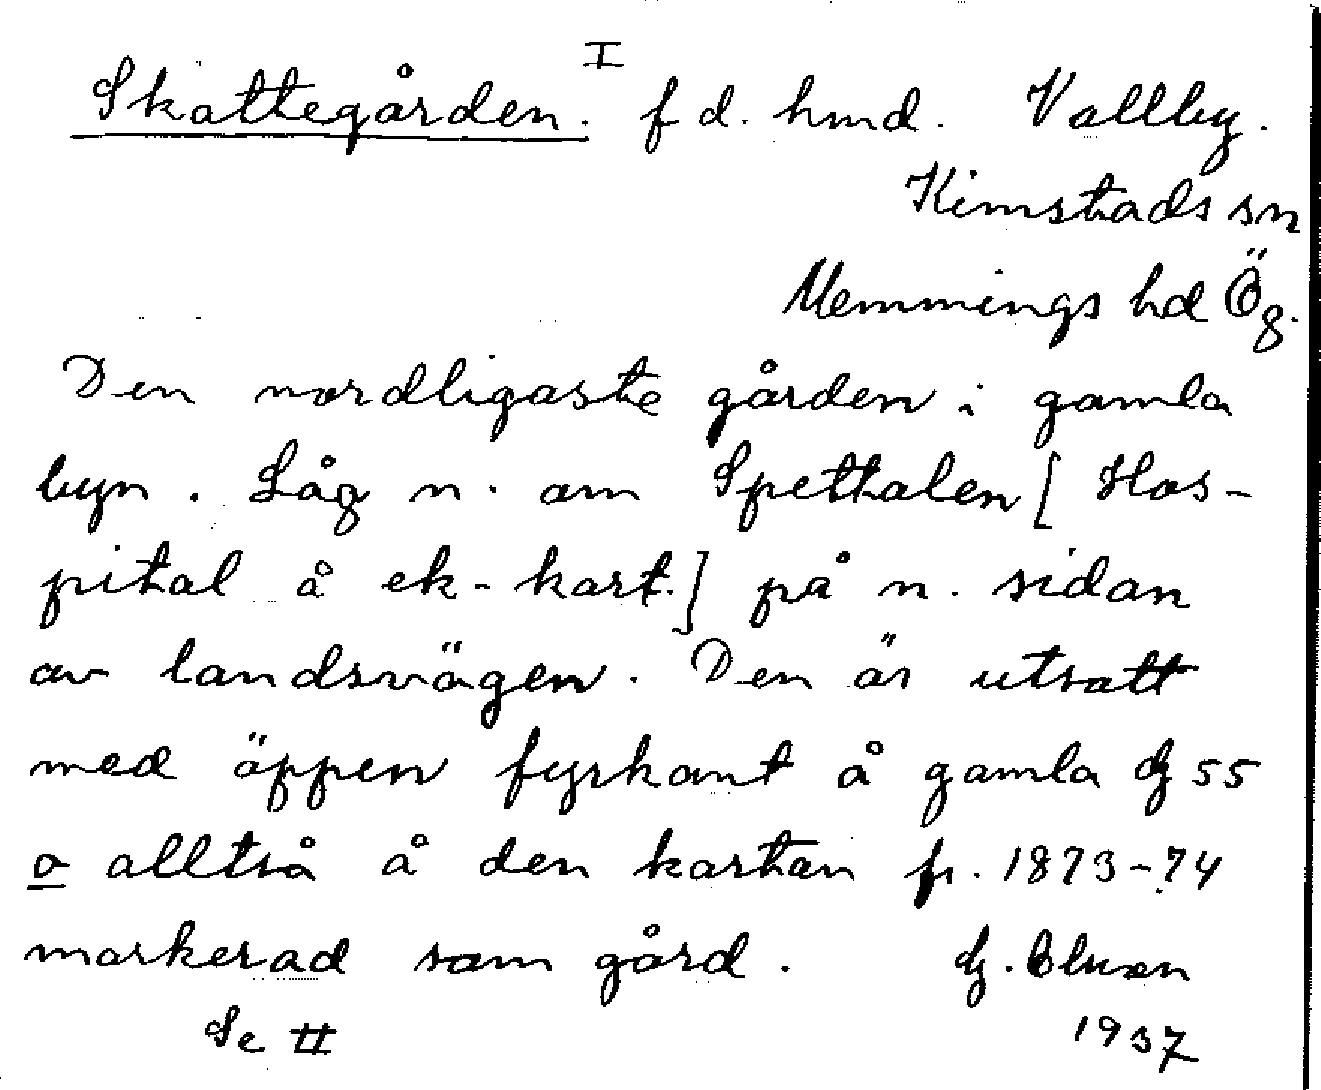 Skattegården. I f d. hmd. Vallby.
Kimstads sn
Memmings hd Ög.
Den nordligaste gården i gamla
byn. Låg n. om Spettalen [Hos-
pital å ek-kart.] på n. sidan
av landsvägen. Den är utsatt
med öppen fyrkant å gamla G 55
o alltså å den kartan fr. 1873-74
markerad som gård. G.
Se II 1937